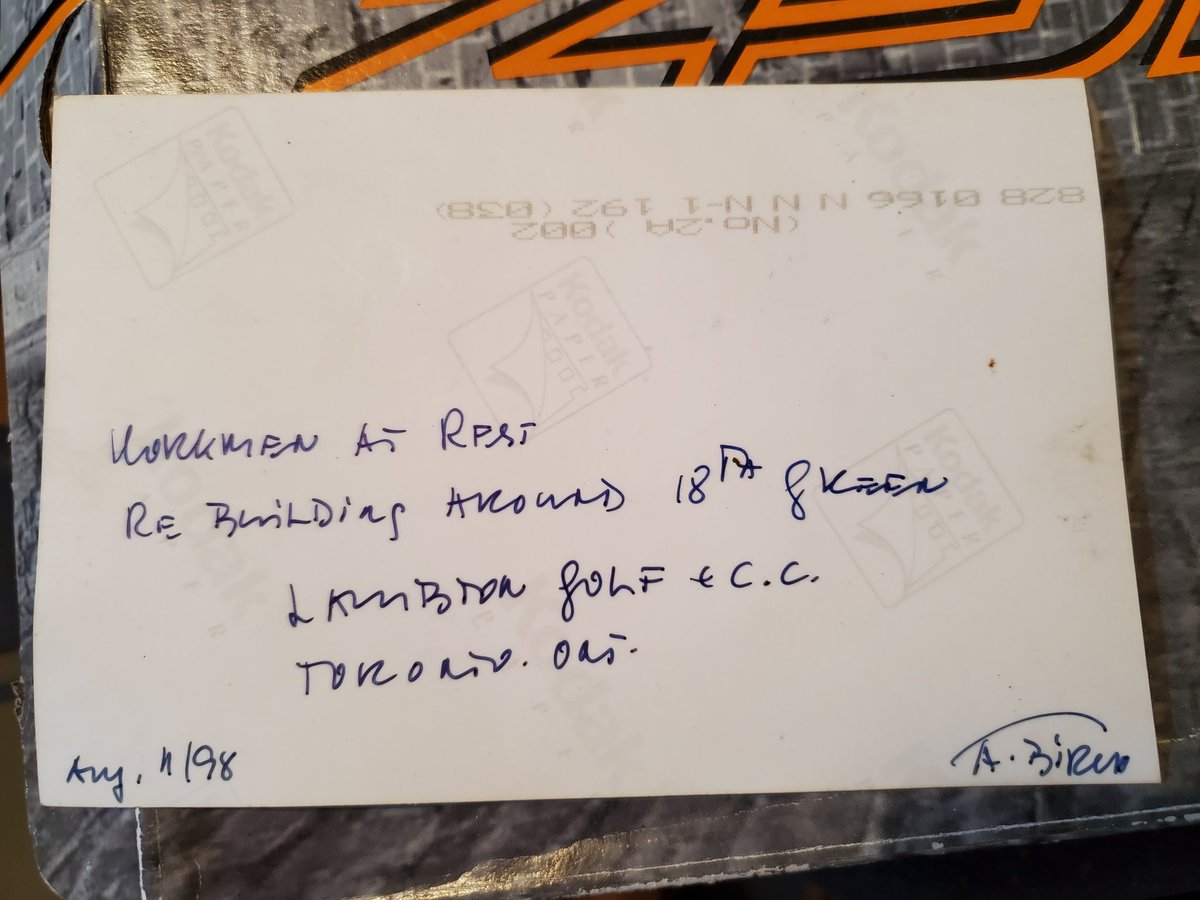 Kodak
PAPER
828 0166 N N N-1 192 (038)
(No.2A )002
Kodak
PAPER
WORKMEN AT REST
RE BUILDING AROUND 18TH GREEN
Kodak
PAPER
LAMBTON GOLF & C.C.
TORONTO. ONT.
Aug. 11/98